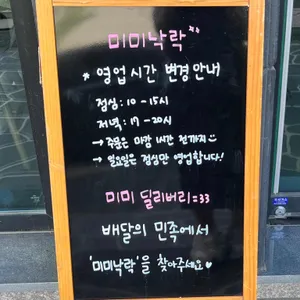 미미낙락
* 영업시간 변경안내
점심: 10-15시
저녁: 17-20시
→ 주문은 마감 1시간 전까지
→ 일요일은 점심만 영업합니다!
미미 딜리버리=33
배달의 민족에서
'미미낙락'을 찾아주세요♥